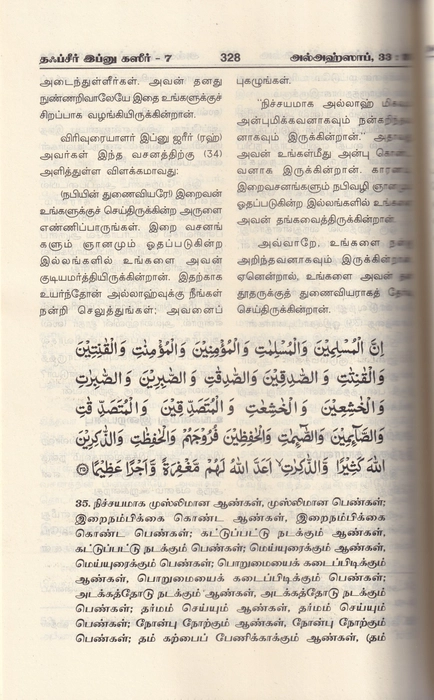 தஃப்சீர் இப்னு கஸீர் - 7
328
அல்அஹ்ஸாப், 33 :
அடைந்துள்ளீர்கள். அவன் தனது
நுண்ணறிவாலேயே இதை உங்களுக்குச்
சிறப்பாக வழங்கியிருக்கின்றான்.
விரிவுரையாளர் இப்னு ஜரீர் (ரஹ்)
அவர்கள் இந்த வசனத்திற்கு (34)
அளித்துள்ள விளக்கமாவது:
(நபியின் துணைவியரே!) இறைவன்
உங்களுக்குச் செய்திருக்கின்ற அருளை
எண்ணிப்பாருங்கள். இறை வசனங்
களும் ஞானமும் ஓதப்படுகின்ற
இல்லங்களில் உங்களை அவன்
குடியமர்த்தியிருக்கின்றான். இதற்காக
உயர்ந்தோன் அல்லாஹ்வுக்கு நீங்கள்
நன்றி செலுத்துங்கள்; அவனைப்
புகழுங்கள்.
"நிச்சயமாக அல்லாஹ்
அன்புமிக்கவனாகவும்
னாகவும் இருக்கின்றான்."
அவன் உங்கள்மீது அன்பு
வனாக இருக்கின்றான்.
இறைவசனங்களும் நபிவழி
ஓதப்படுகின்ற இல்லங்களில்
அவன் தங்கவைத்திருக்கின்றான்.
அவ்வாறே, உங்களை
அறிந்தவனாகவும்
ஏனென்றால், உங்களை அவன்
தூதருக்குத் துணைவியராகத்
செய்திருக்கிறான்.
اِنَّ الْمُسْلِمِيْنَ وَالْمُسْلِمٰتِ وَالْمُؤْمِنِيْنَ وَالْمُؤْمِنٰتِ وَالْقٰنِتِيْنَ
وَالْقٰنِتٰتِ وَالصّٰدِقِيْنَ وَالصّٰدِقٰتِ وَالصّٰبِرِيْنَ وَالصّٰبِرٰتِ
وَالْخٰشِعِيْنَ وَالْخٰشِعٰتِ وَالْمُتَصَدِّقِيْنَ وَالْمُتَصَدِّقٰتِ
وَالصَّآئِمِيْنَ وَالصّٰٓئِمٰتِ وَالْحٰفِظِيْنَ فُرُوْجَهُمْ وَالْحٰفِظٰتِ وَالذّٰكِرِيْنَ
اللّٰهَ كَثِيْرًا وَّالذّٰكِرٰتِ ۙ اَعَدَّ اللّٰهُ لَهُمْ مَّغْفِرَةً وَّاَجْرًا عَظِيْمًا ﴿٣٥﴾
35. நிச்சயமாக முஸ்லிமான ஆண்கள், முஸ்லிமான பெண்கள்;
இறைநம்பிக்கை கொண்ட ஆண்கள், இறைநம்பிக்கை
கொண்ட பெண்கள்; கட்டுப்பட்டு நடக்கும் ஆண்கள்,
கட்டுப்பட்டு நடக்கும் பெண்கள்; மெய்யுரைக்கும் ஆண்கள்,
மெய்யுரைக்கும் பெண்கள்; பொறுமையைக் கடைப்பிடிக்கும்
ஆண்கள், பொறுமையைக் கடைப்பிடிக்கும் பெண்கள்;
அடக்கத்தோடு நடக்கும் ஆண்கள், அடக்கத்தோடு நடக்கும்
பெண்கள்; தர்மம் செய்யும் ஆண்கள், தர்மம் செய்யும்
பெண்கள்; நோன்பு நோற்கும் ஆண்கள், நோன்பு நோற்கும்
பெண்கள்; தம் கற்பைப் பேணிக்காக்கும் ஆண்கள், (தம்